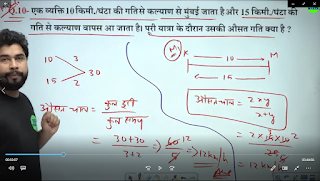 Q.10- एक व्यक्ति 10 किमी./घंटा की गति से कल्याण से मुंबई जाता है और 15 किमी./घंटा की
गति से कल्याण वापस आ जाता है। पूरी यात्रा के दौरान उसकी औसत गति क्या है ?
10 3
30
15 2
औसत चाल = कुल दूरी
कुल समय
= 30+30
3+2
⇒ 60 12
5
⇒ 12 km/h
Ans
K M
10
15
औसत चाल = 2xy
x+y
= 2×10×15
12 km/h